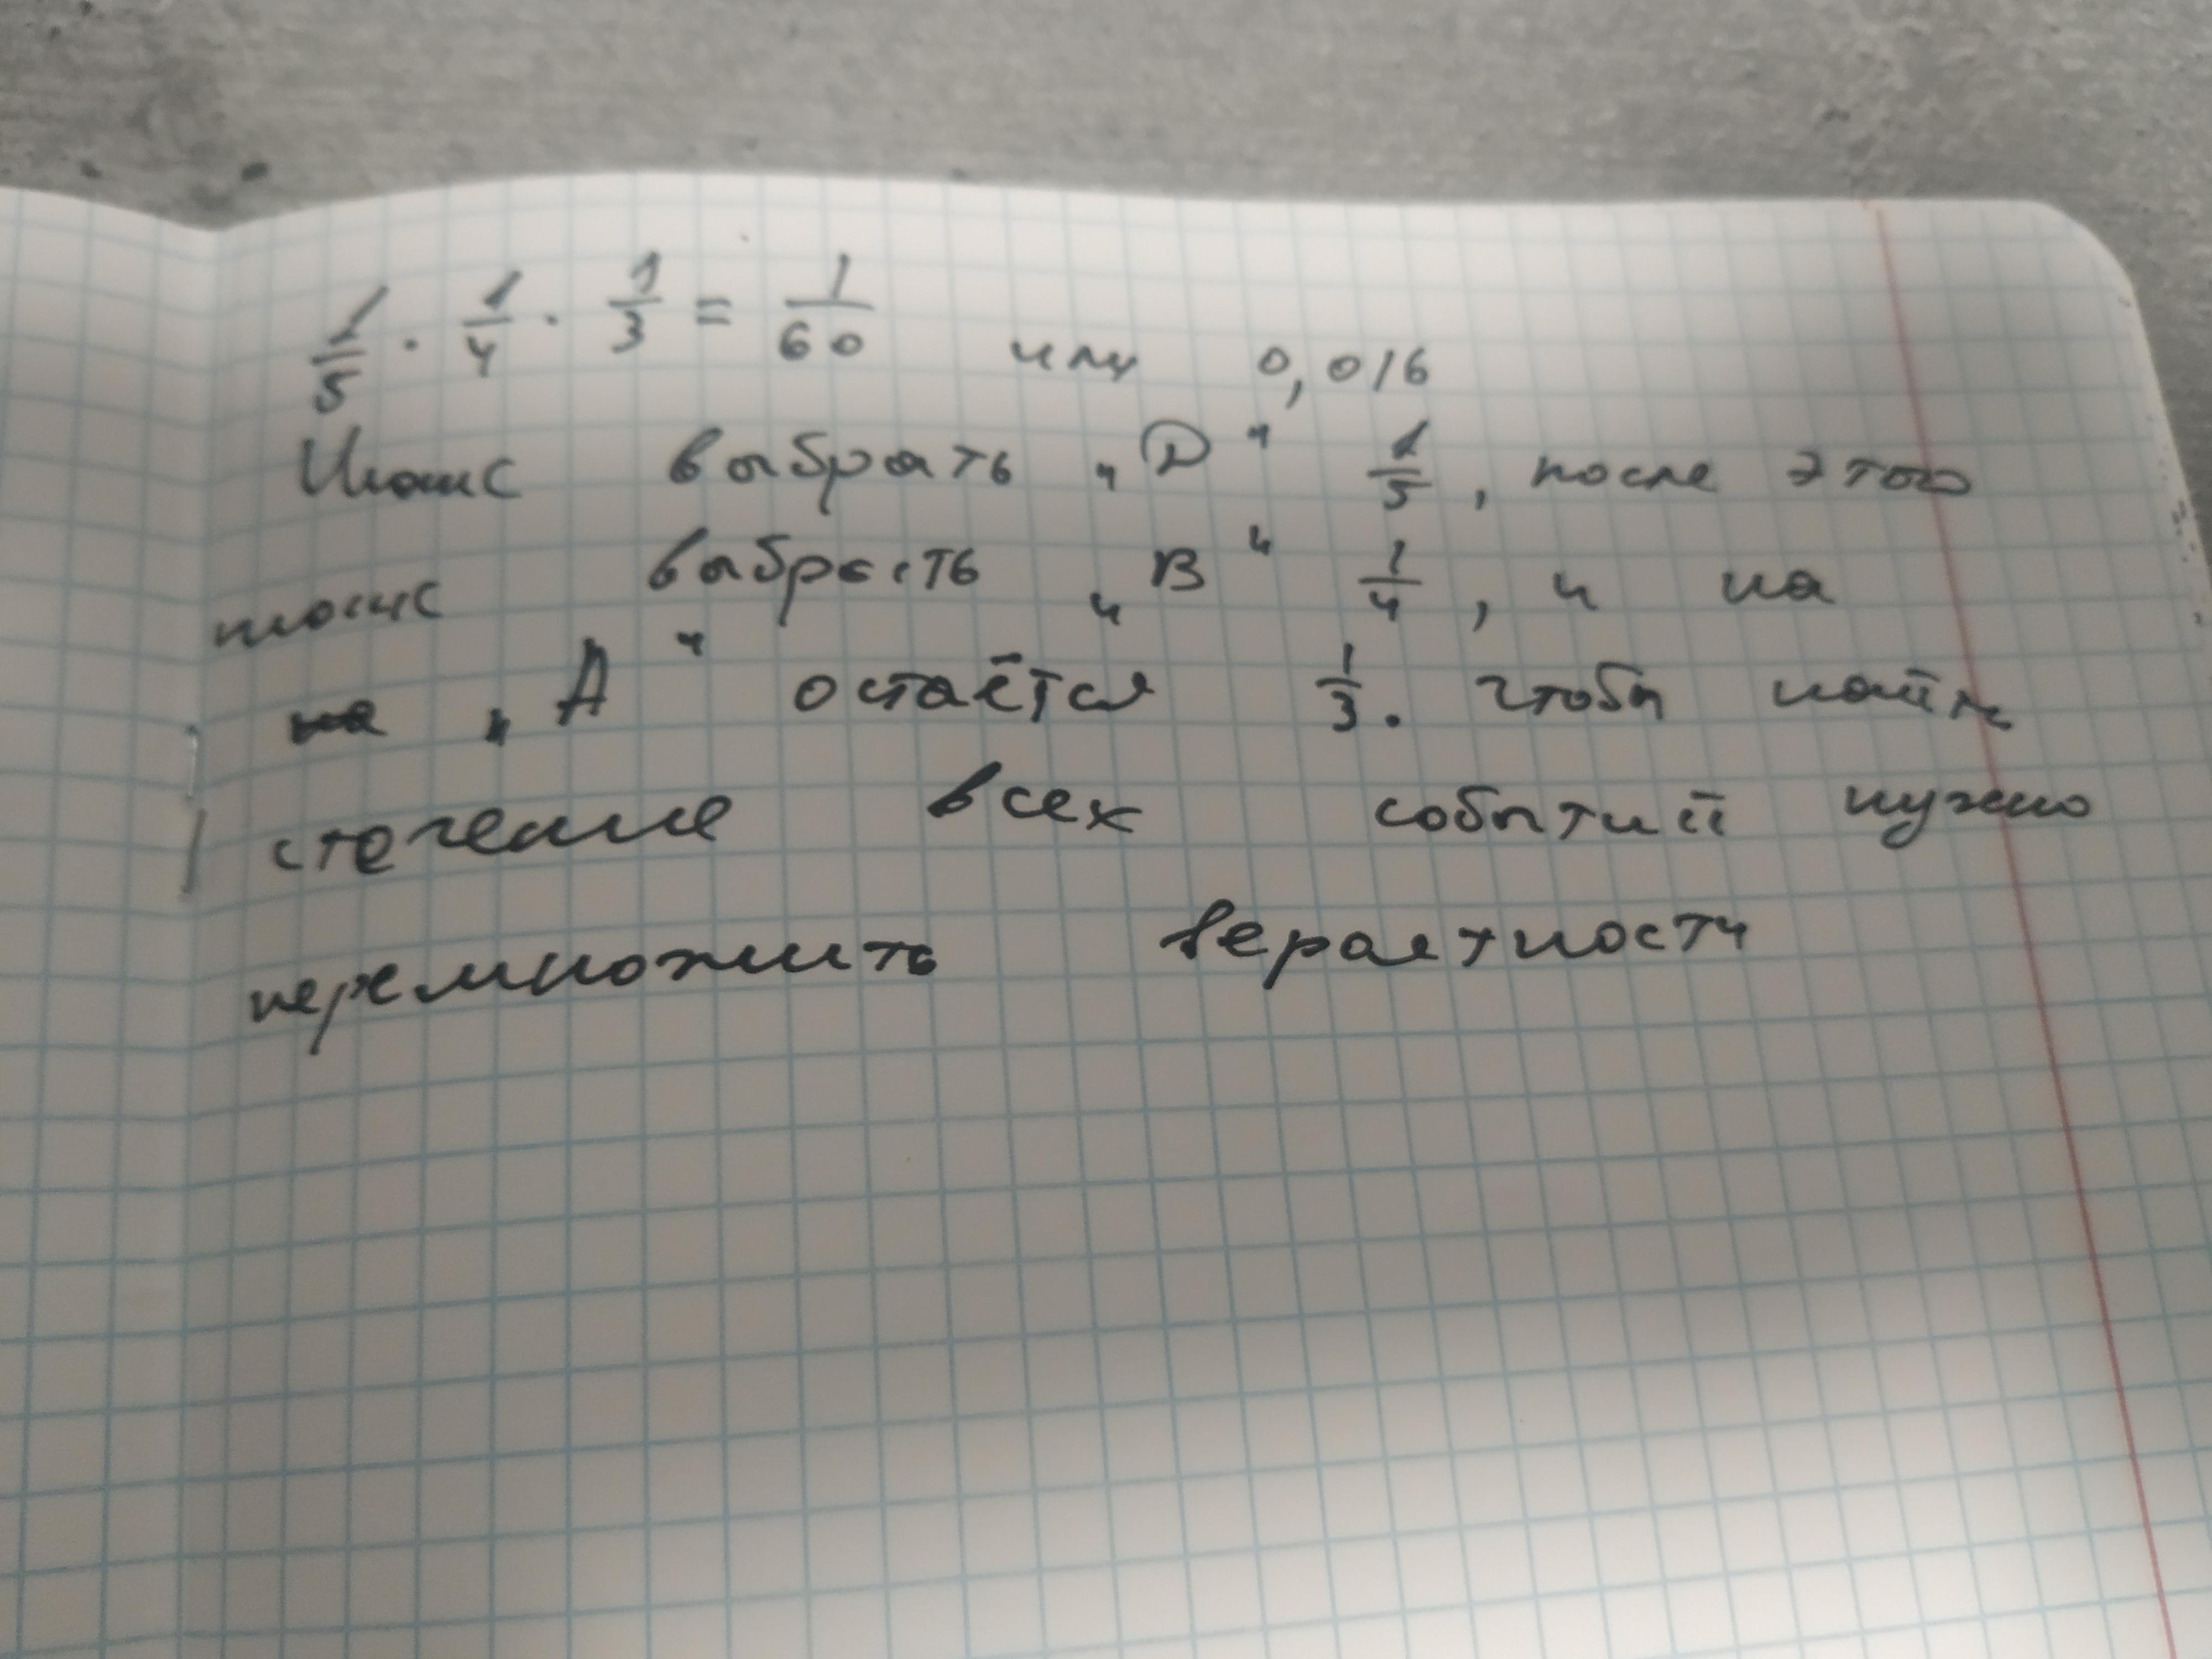 1/5 · 1/4 · 1/3 = 1/60 или 0,016
Шанс выбрать „D“ 1/5, после этого
шанс выбрать „B“ 1/4, и на
на „A“ остаётся 1/3. чтобы найти
стечение всех событий нужно
перемножить вероятности